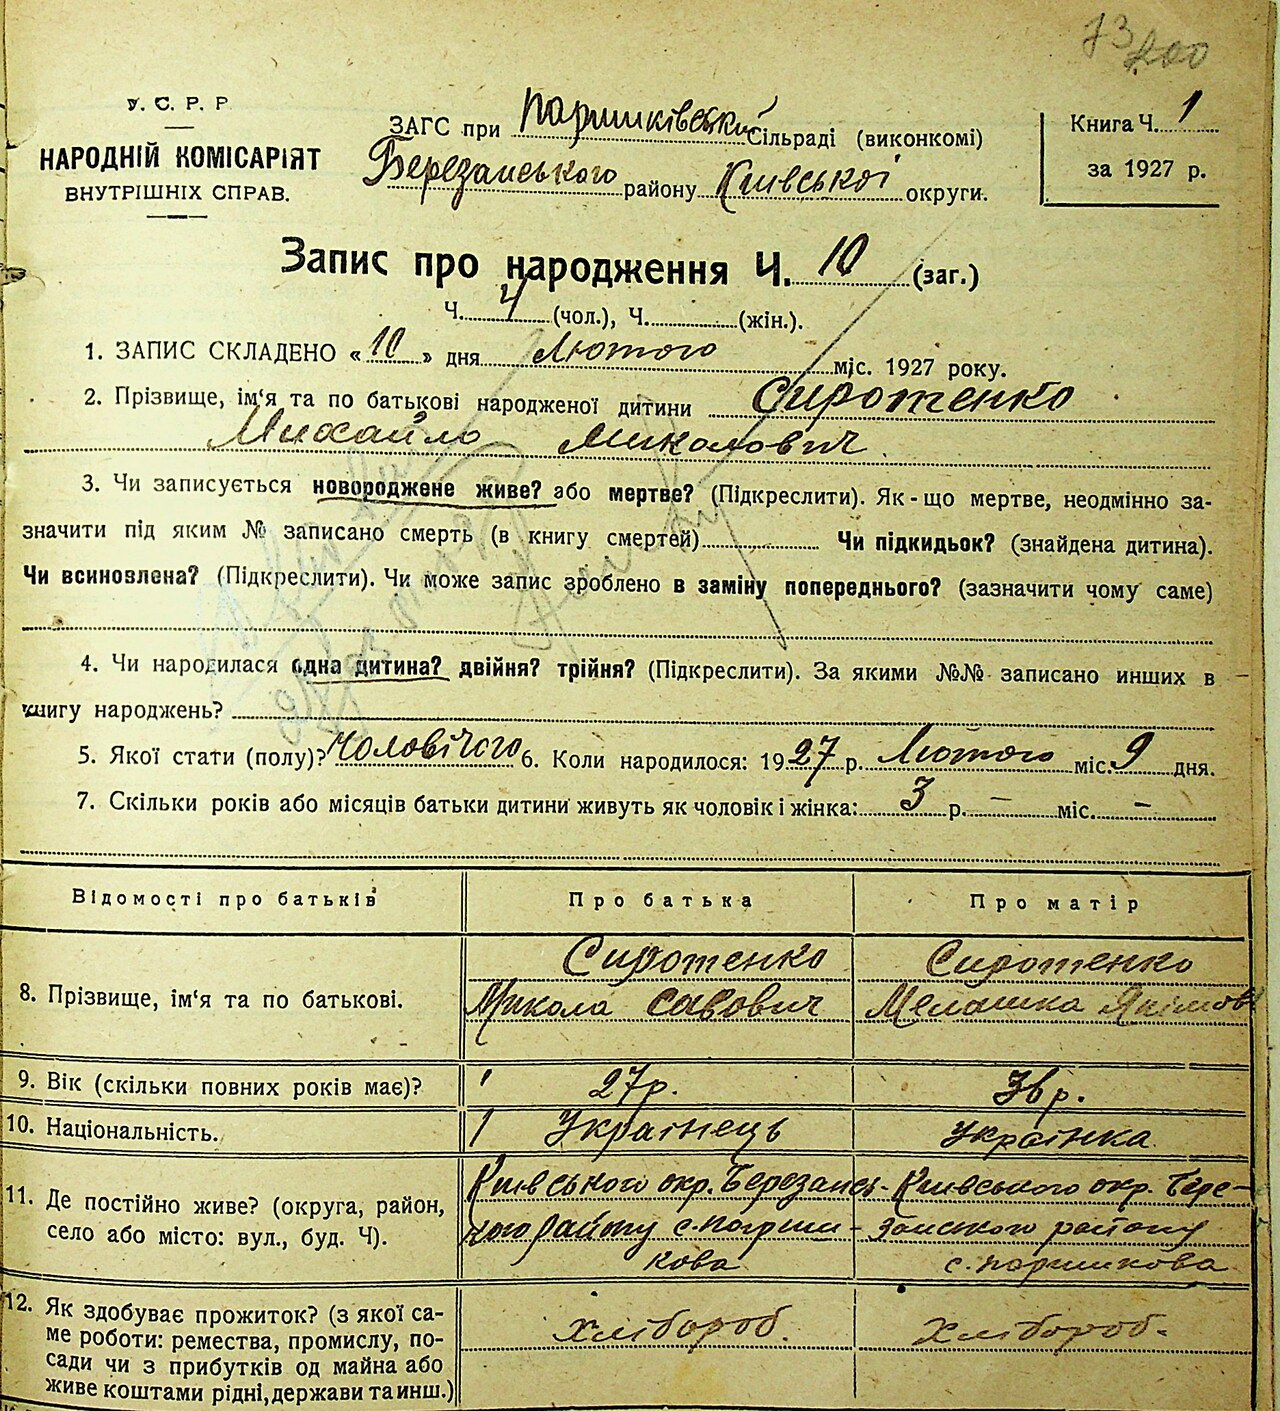 73
200
У. С. Р. Р
НАРОДНІЙ КОМІСАРІЯТ
ВНУТРІШНІХ СПРАВ.
ЗАГС при Паришківській Сільраді (виконкомі)
Березанського району Київської округи.
Книга Ч. 1
за 1927 р.
Запис про народження Ч. 10 (заг.)
Ч. 4 (чол.), Ч. (жін.).
1. ЗАПИС СКЛАДЕНО « 10 » дня Лютого міс. 1927 року.
2. Прізвище, ім'я та по батькові народженої дитини Сиротенко
Михайло Миколович
3. Чи записується новороджене живе? або мертве? (Підкреслити). Як-що мертве, неодмінно за-
значити під яким № записано смерть (в книгу смертей) Чи підкидьок? (знайдена дитина).
Чи всиновлена? (Підкреслити). Чи може запис зроблено в заміну попереднього? (зазначити чому саме)
4. Чи народилася одна дитина? двійня? трійня? (Підкреслити). За якими №№ записано инших в
книгу народжень?
5. Якої стати (полу)? Чоловічого 6. Коли народилося: 1927 р. Лютого міс. 9 дня.
7. Скільки років або місяців батьки дитини живуть як чоловік і жінка: 3 р. — міс. —
Відомості про батьків Про батька Про матір
8. Прізвище, ім'я та по батькові. Сиротенко Сиротенко
Микола Савович Мелашка Якімов
9. Вік (скільки повних років має)? 27 р.
10. Національність. Українець Українка
11. Де постійно живе? (округа, район,
село або місто: вул., буд. Ч).
Київського окр. Березансь-
кого району с.
кова
Київського окр. Бере-
занського району
с. Паришкова
12. Як здобуває прожиток? (з якої са-
ме роботи: ремества, промислу, по-
сади чи з прибутків од майна або
живе коштами рідні, держави та инш.)
Хлібороб. Хлібороб.